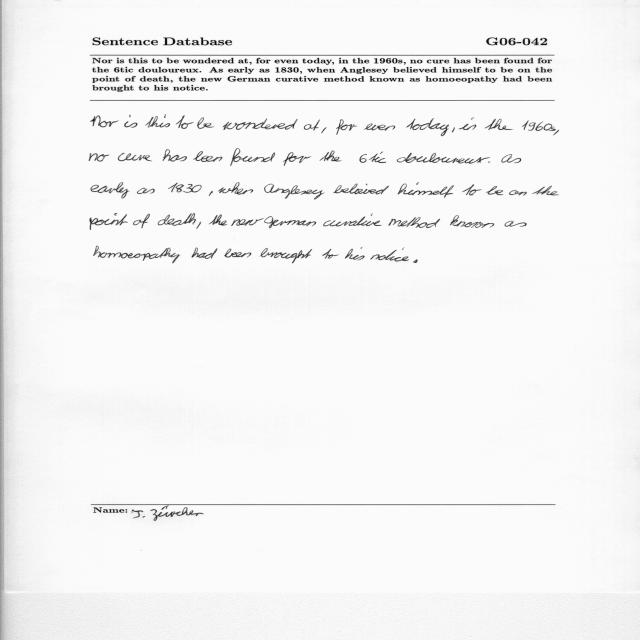 Sentence Database G06-042
Nor is this to be wondered at, for even today, in the 1960s, no cure has been found for
the 6tic douloureux. As early as 1830, when Anglesey believed himself to be on the
point of death, the new German curative method known as homoeopathy had been
brought to his notice.
Nor is this to be wondered at, for even today, in the 1960s,
no cure has been found for the 6tic douloureux. As
early as 1830, when Anglesey believed himself to be on the
point of death, the new German curative method known as
homoeopathy had been brought to his notice.
Name: J. Zürcher